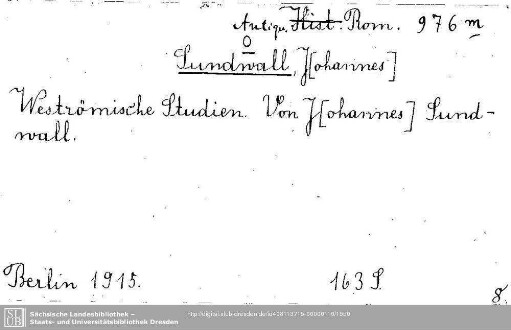 Antiqu. Hist. Rom. 976 m
O
Sundwall, J[ohannes]
Weströmische Studien. Von J[ohannes] Sund-
wall.
Berlin 1915. 163 S.
8.
Sächsische Landesbibliothek –
Staats- und Universitätsbibliothek Dresden